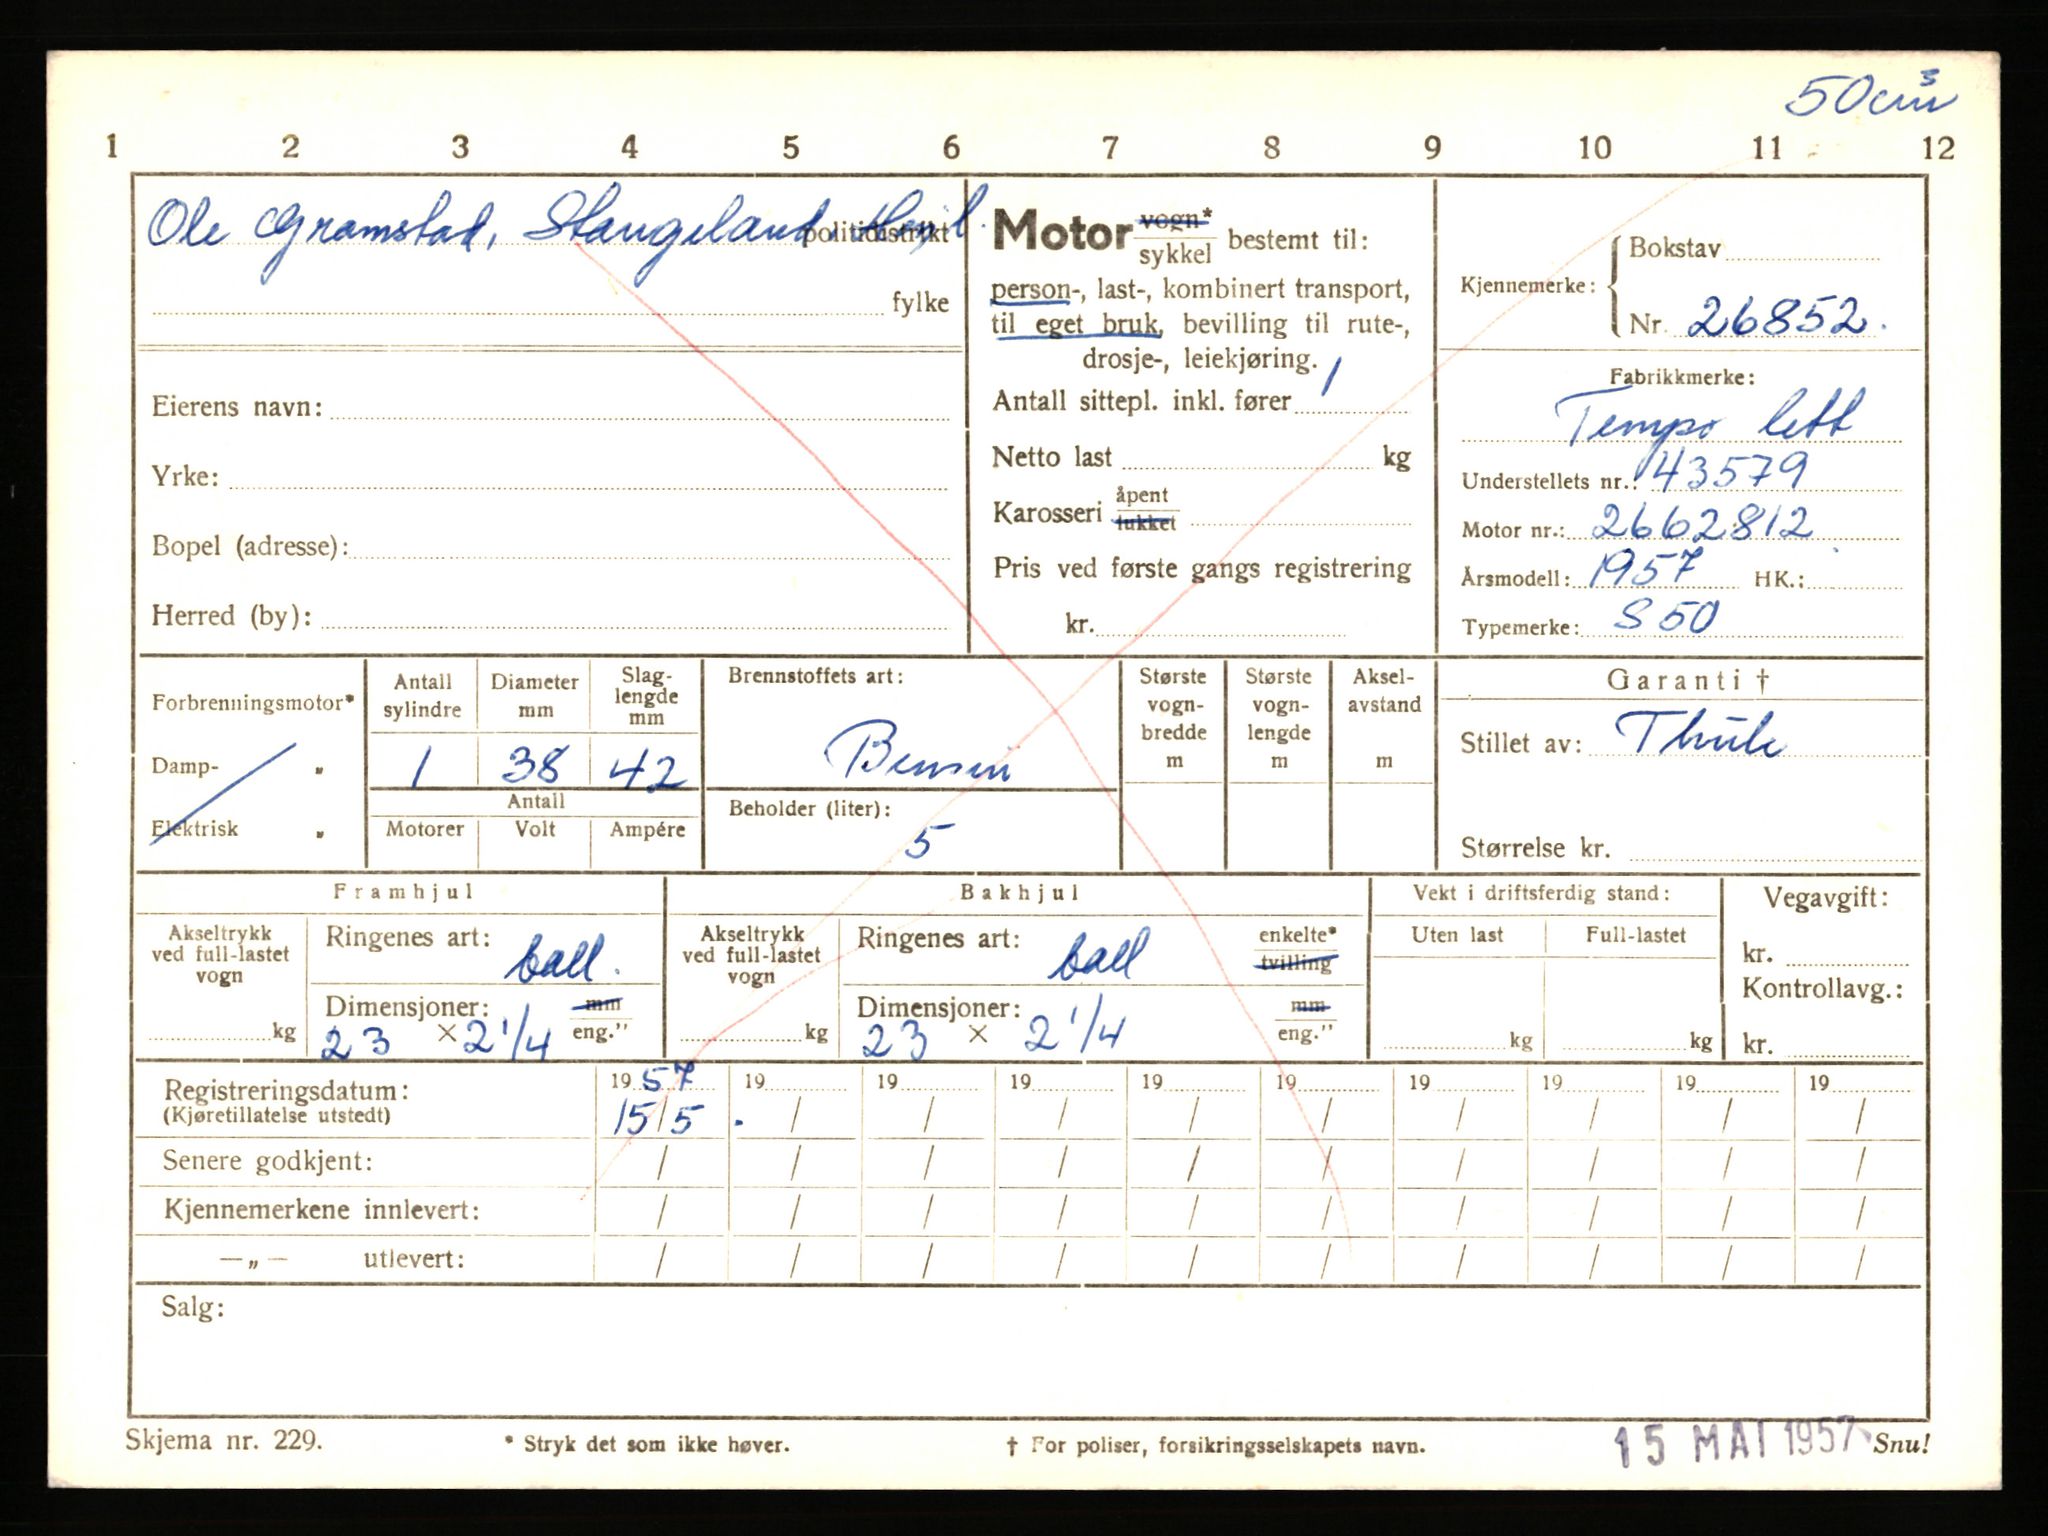 50cm³
1 2 3 4 5 6 7 8 9 10 11 12
Ole Gramstad, Stangeland politidistrikt
fylke
Eierens navn:
Yrke:
Bopel (adresse):
Herred (by):
Motor vogn* sykkel bestemt til:
person-, last-, kombinert transport,
til eget bruk, bevilling til rute-,
drosje-, leiekjøring.
Antall sittepl. inkl. fører 1
Netto last kg
Karosseri åpent lukket
Pris ved første gangs registrering
kr.
Kjennemerke: Bokstav
Nr. 26852.
Fabrikkmerke:
Tempo lett
Understellets nr.: 43579
Motor nr.: 2662812
Årsmodell: 1957 HK.:
Typemerke: S 50
Forbrenningsmotor*
Damp- „
Elektrisk „
Antall sylindre
1
Diameter mm
38
Slag-
lengde
mm
42
Antall
Motorer Volt Ampére
Brennstoffets art:
Bensin
Beholder (liter):
5
Største
vogn-
bredde
m
Største
vogn-
lengde
m
Aksel-
avstand
m
Garanti †
Stillet av: Thule
Størrelse kr.
Framhjul
Akseltrykk
ved full-lastet
vogn
kg
Ringenes art:
ball.
Dimensjoner: mm
23 × 2 1/4 eng."
Bakhjul
Akseltrykk
ved full-lastet
vogn
kg
Ringenes art: enkelte*
ball tvilling
Dimensjoner: mm
23 × 2 1/4 eng."
Vekt i driftsferdig stand:
Uten last Full-lastet
kg kg
Vegavgift:
kr.
Kontrollavg.:
kr.
Registreringsdatum: 1957 19 19 19 19 19 19 19 19 19
(Kjøretillatelse utstedt) 15/5. / / / / / / / / /
Senere godkjent: / / / / / / / / / /
Kjennemerkene innlevert: / / / / / / / / / /
—„— utlevert: / / / / / / / / / /
Salg:
Skjema nr. 229. * Stryk det som ikke høver. † For poliser, forsikringsselskapets navn. 15 MAI 1957 Snu!